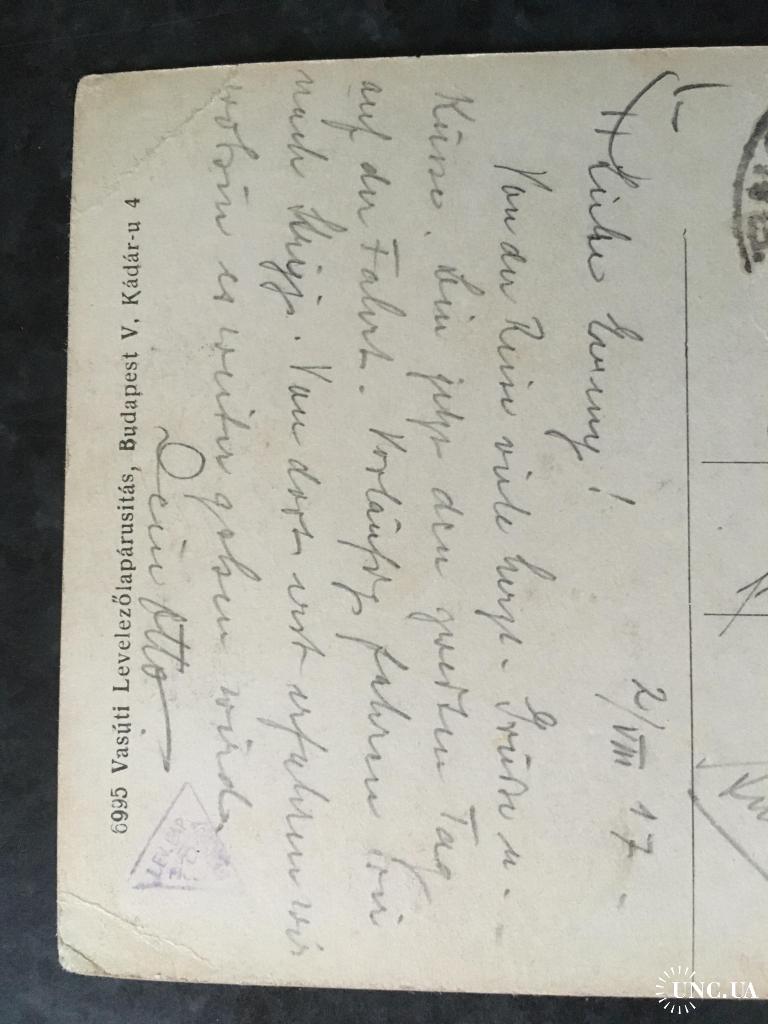 2/VIII 17.
Liebe Emmy!
Von der Reise viele herzl. Grüße u.
Küsse. Bin jetzt den zweiten Tag
auf der Fahrt. Vorläufig fahren wir
nach. Von dort erst erfahren wir
wohin es weiter gehen wird.
Dein Otto
6995 Vasúti Levelezőlapárusitás, Budapest V, Kádár-u 4
UNC.UA